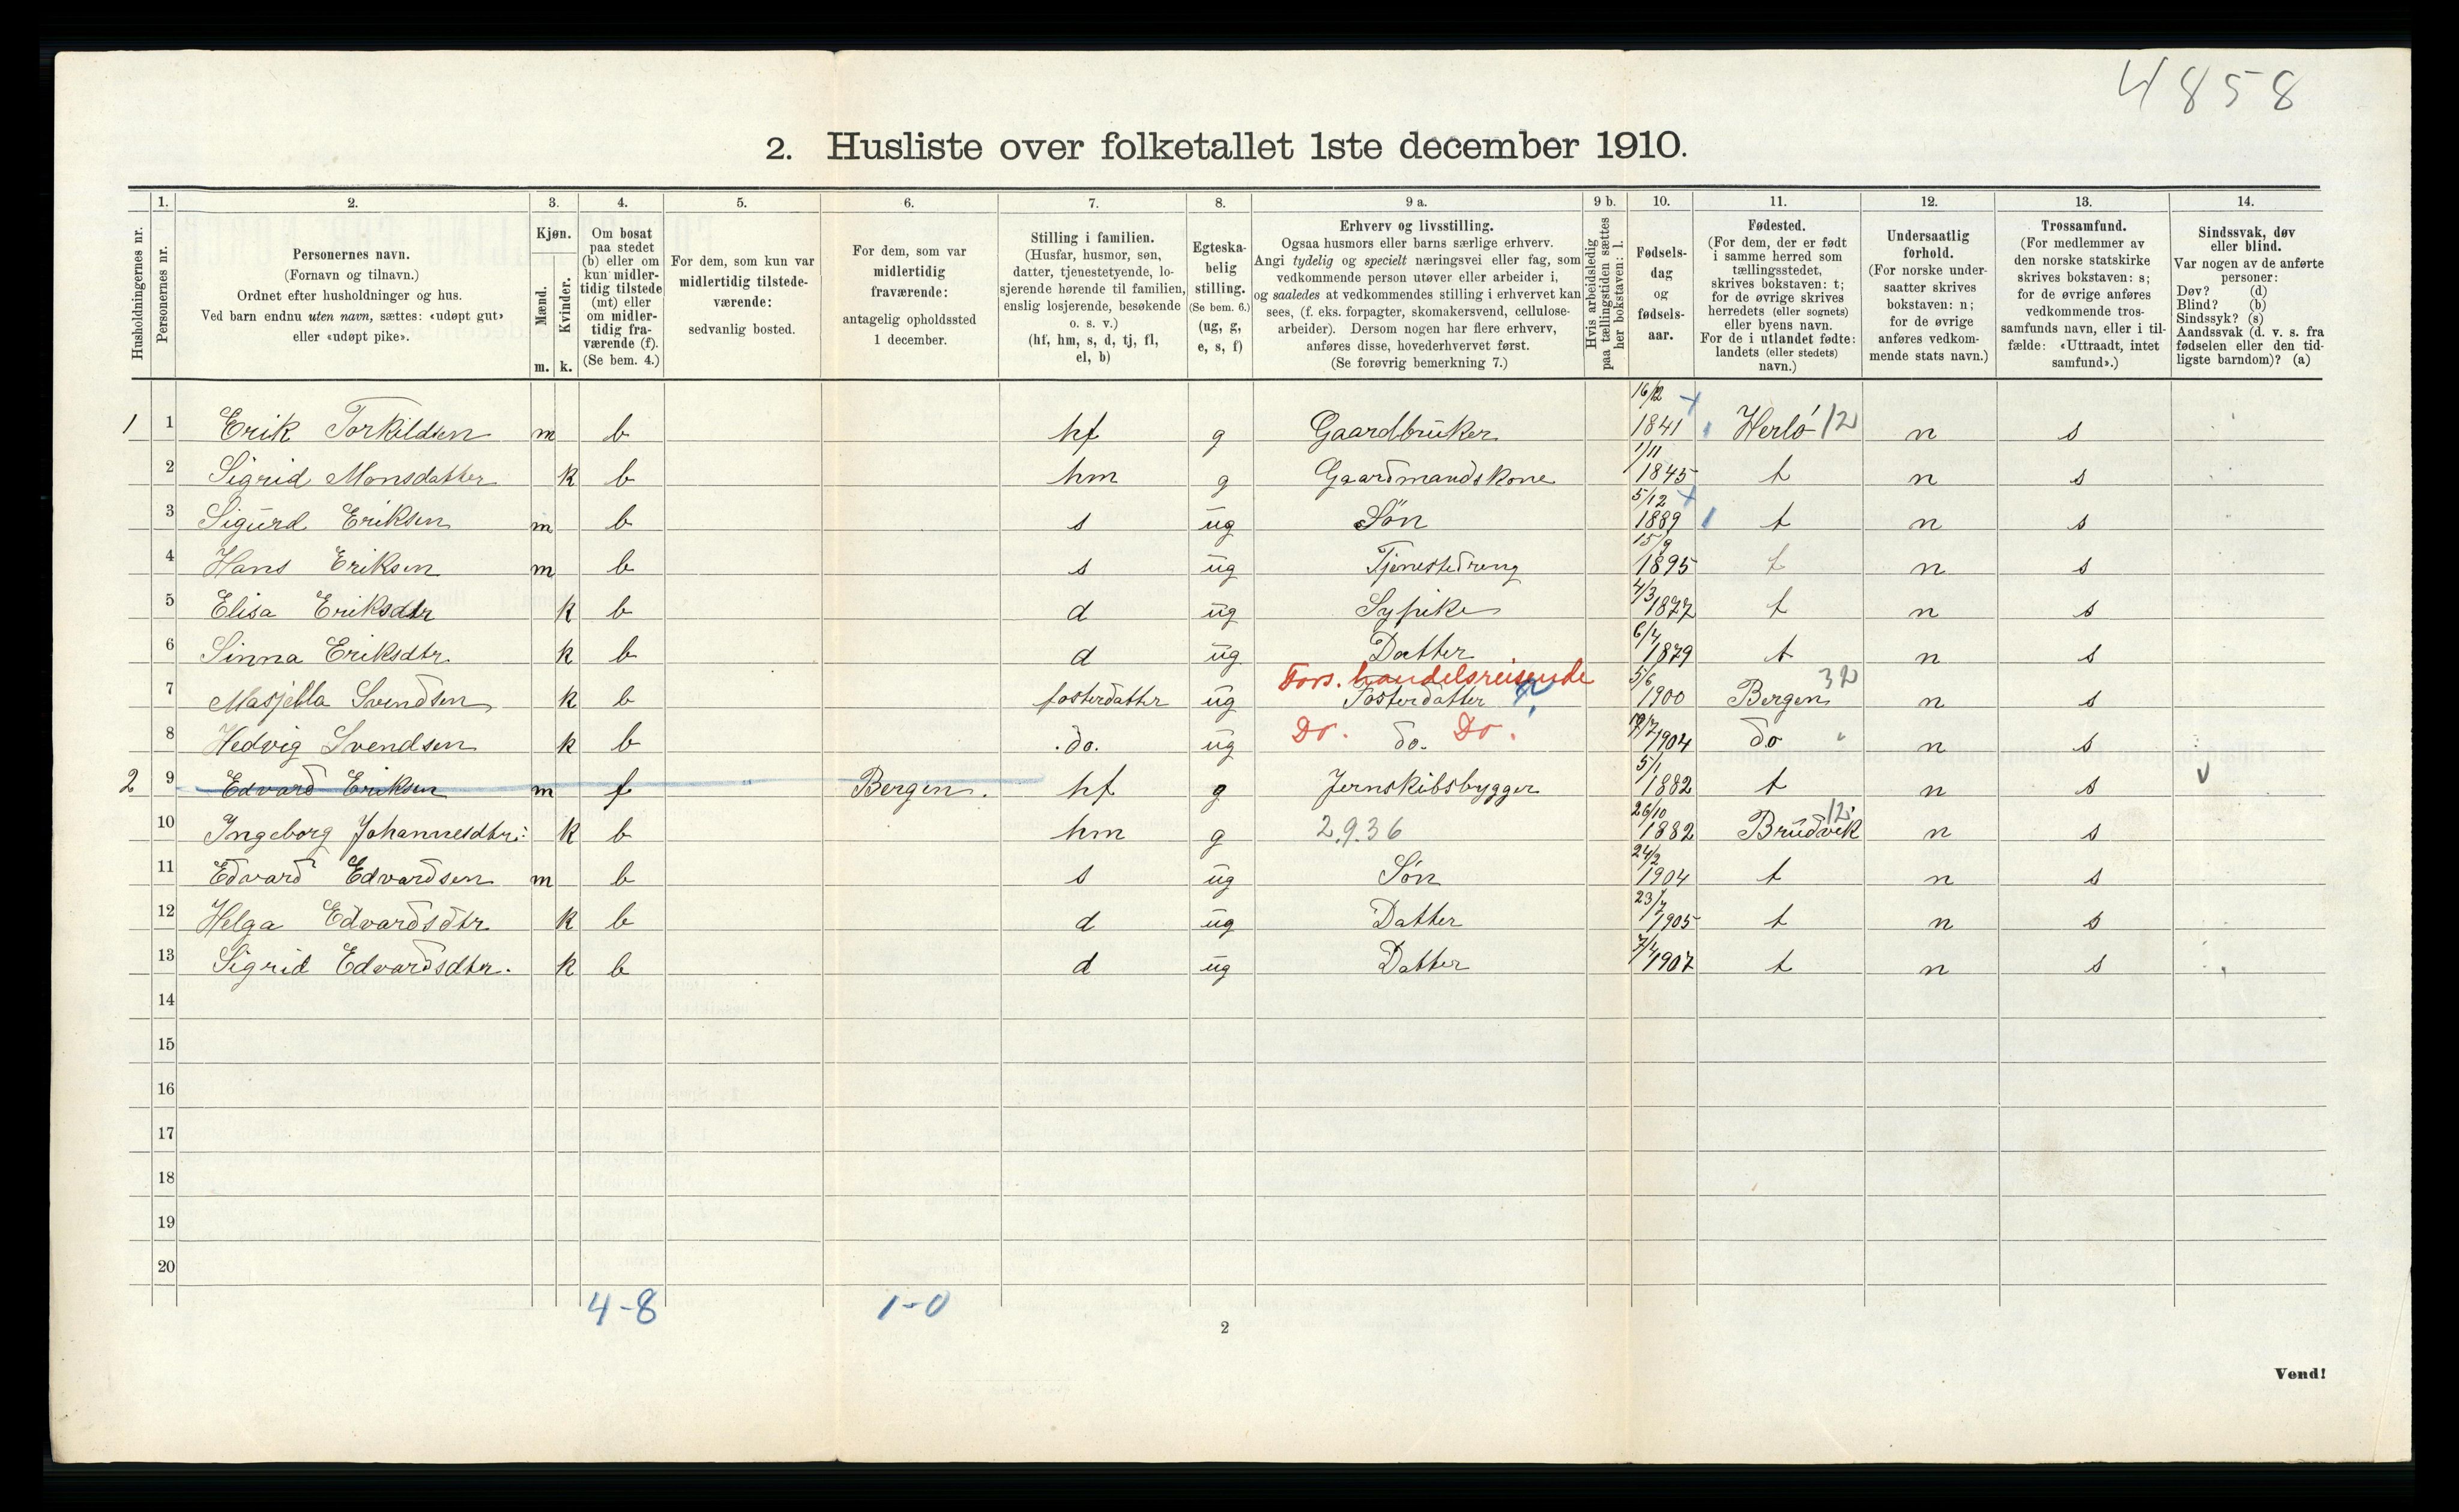 4858
2. Husliste over folketallet 1ste december 1910.
Husholdningernes nr.
1. Personernes nr.
2. Personernes navn.
(Fornavn og tilnavn.)
Ordnet efter husholdninger og hus.
Ved barn endnu uten navn, sættes: «udøpt gut»
eller «udøpt pike».
3. Kjøn.
Mænd. m.
Kvinder. k.
4. Om bosat
paa stedet
(b) eller om
kun midler-
tidig tilstede
(mt) eller
om midler-
tidig fra-
værende (f).
(Se bem. 4.)
5. For dem, som kun var
midlertidig tilstede-
værende:
sedvanlig bosted.
6. For dem, som var
midlertidig
fraværende:
antagelig opholdssted
1 december.
7. Stilling i familien.
(Husfar, husmor, søn,
datter, tjenestetyende, lo-
sjerende hørende til familien,
enslig losjerende, besøkende
o. s. v.)
(hf, hm, s, d, tj, fl,
el, b)
8. Egteska-
belig
stilling.
(Se bem. 6.)
(ug, g,
e, s, f)
9 a. Erhverv og livsstilling.
Ogsaa husmors eller barns særlige erhverv.
Angi tydelig og specielt næringsvei eller fag, som
vedkommende person utøver eller arbeider i,
og saaledes at vedkommendes stilling i erhvervet kan
sees, (f. eks. forpagter, skomakersvend, cellulose-
arbeider). Dersom nogen har flere erhverv,
anføres disse, hovederhvervet først.
(Se forøvrig bemerkning 7.)
9 b. Hvis arbeidsledig
paa tællingstiden sættes
her bokstaven: l.
10. Fødsels-
dag
og
fødsels-
aar.
11. Fødested.
(For dem, der er født
i samme herred som
tællingsstedet,
skrives bokstaven: t;
for de øvrige skrives
herredets (eller sognets)
eller byens navn.
For de i utlandet fødte:
landets (eller stedets)
navn.)
12. Undersaatlig
forhold.
(For norske under-
saatter skrives
bokstaven: n;
for de øvrige
anføres vedkom-
mende stats navn.)
13. Trossamfund.
(For medlemmer av
den norske statskirke
skrives bokstaven: s;
for de øvrige anføres
vedkommende tros-
samfunds navn, eller i til-
fælde: «Uttraadt, intet
samfund».)
14. Sindssvak, døv
eller blind.
Var nogen av de anførte
personer:
Døv? (d)
Blind? (b)
Sindssyk? (s)
Aandssvak (d. v. s. fra
fødselen eller den tid-
ligste barndom)? (a)
1 1 Erik Torkildsen m b hf g Gaardbruker 16/12 1841 Herlö 12 n s
2 Sigrid Monsdatter k b hm g Gaardmandskone 1/11 1845 t n s
3 Sigurd Eriksen m b s ug Søn 5/12 1889 t n s
4 Hans Eriksen m b s ug Tjenestedreng 15/9 1895 t n s
5 Elisa Eriksdtr k b d ug Sypike 4/3 1877 t n s
6 Sinna Eriksdtr. k b d ug Datter 6/7 1879 t n s
Fors. handelsreisende
7 Masjella Svendsen k b fosterdatter ug Fosterdatter 5/6 1900 Bergen 32 n s
8 Hedvig Svendsen k b do. ug Do. do. Do. 1904 do n s
2 9 Edvard Eriksen m f Bergen. hf g Jernskibsbygger 5/1 1882 t n s v
10 Ingeborg Johannesdtr: k b hm g 2.9.36 26/10 1882 Brudvik 12 n s
11 Edvard Edvardsen m b s ug Søn 24/2 1904 t n s
12 Helga Edvardsdtr k b d ug Datter 23/7 1905 t n s
13 Sigrid Edvardsdtr. k b d ug Datter 7/4 1907 t n s
14
15
16
17
18
19
20
4-8 1-0
2
Vend!